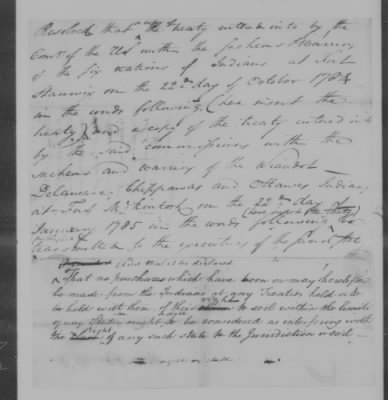 Resolved that the treaty entered into by the
Comrs of the US with the Sachems & Warriors
of the six nations of Indians at Fort
Stanwix on the 22nd day of October 1784
in the words following (here insert the
treaty) and a copy of the treaty entered into
by the said commissioners with the
sachems and warriors of the Wiandot
Delaware, Chippawas and Ottawas Indians
at Fort McIntosh on the 22nd day of
(here insert the treaty)
January 1785 in the words following be
transmitted to the executives of the several states
And that it be declared
That no purchases which have been or may hereafter
be made from the Indians at any Treaties held or to
be held with them of their right to soil within the limits
of any State ought to be considered as interfering with
the right of any such state to the Jurisdiction or soil